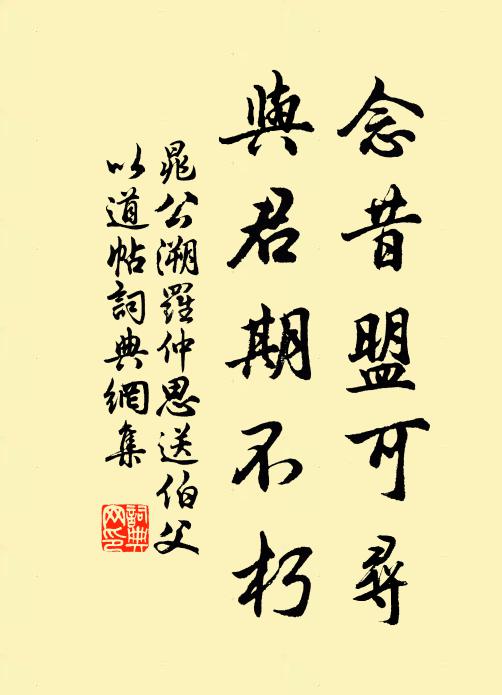 念昔盟可尋
與君期不朽
晁公溯羅仲思送伯父
以道帖詞典網集
詞典
网印